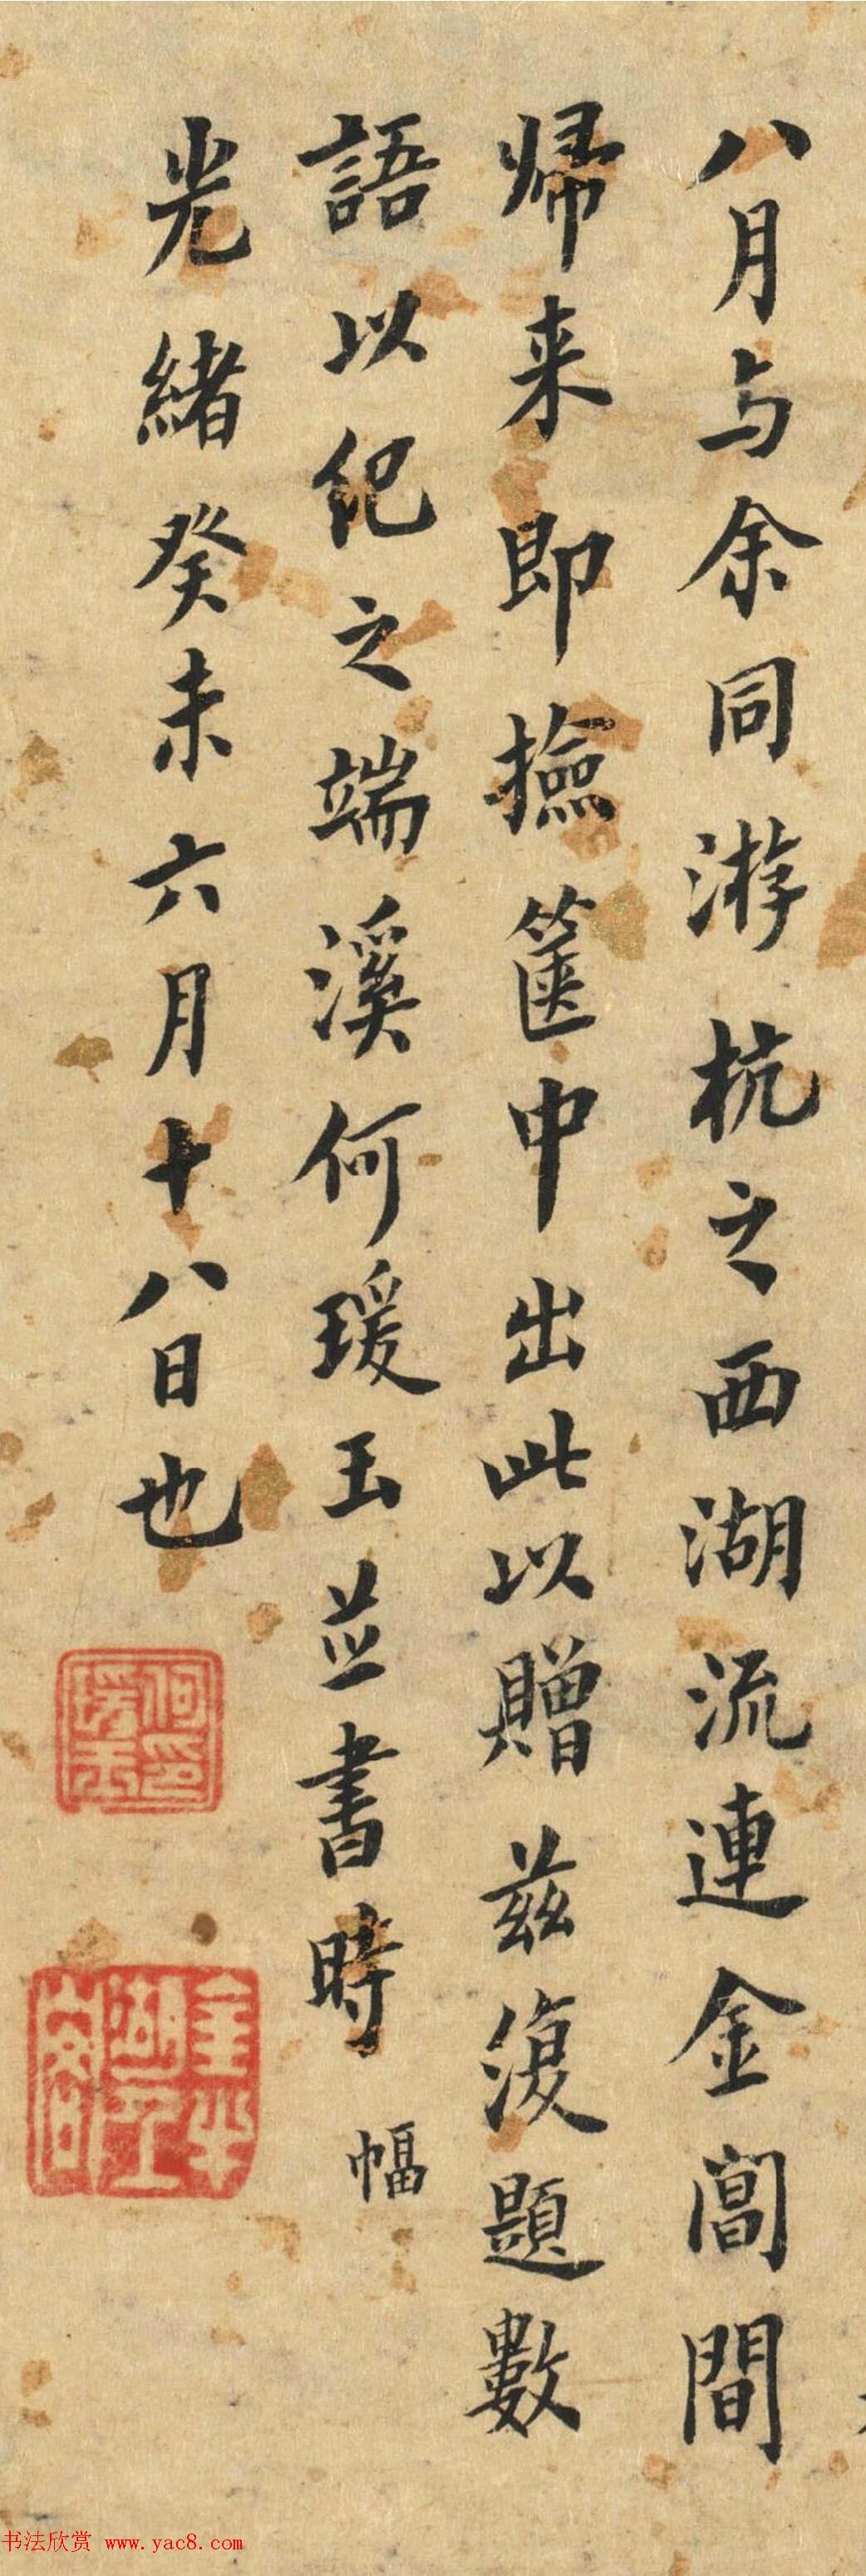 八月与余同游杭之西湖流連金閶間
歸来即撿篋中出此以贈兹復題數
語以纪之端溪何瑗玉並書時
幅
光緒癸未六月十八日也
何瑗玉印
书法欣赏 www.yac8.com